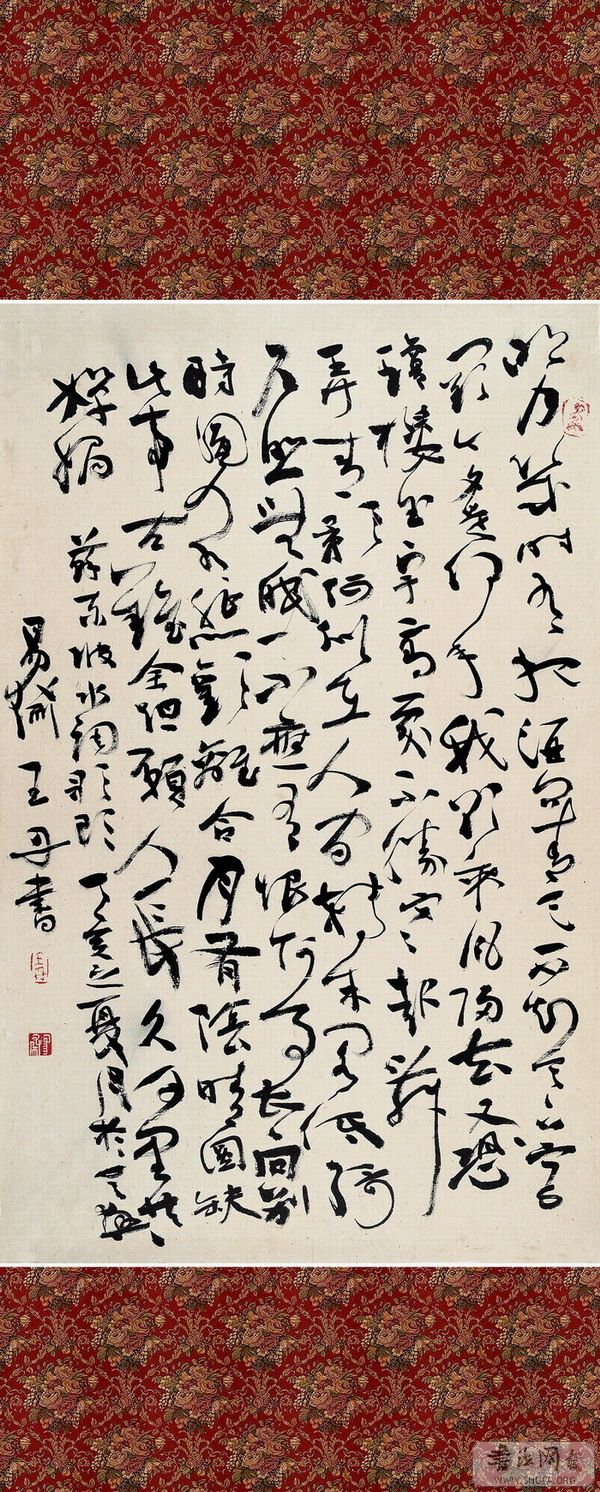 明月幾時有把酒問青天不知天上宮
闕今夕是何年我欲乘風歸去又恐
瓊樓玉宇高處不勝寒起舞
弄清影何似在人間轉朱閣低綺
戶照無眠不應有恨何事長向別
時圓人有悲歡離合月有陰晴圓缺
此事古難全但願人長久千里共
嬋娟
蘇東坡水調歌頭丁亥之夏月於天
易王丹書
书法网
WWW.SHUFA.ORG